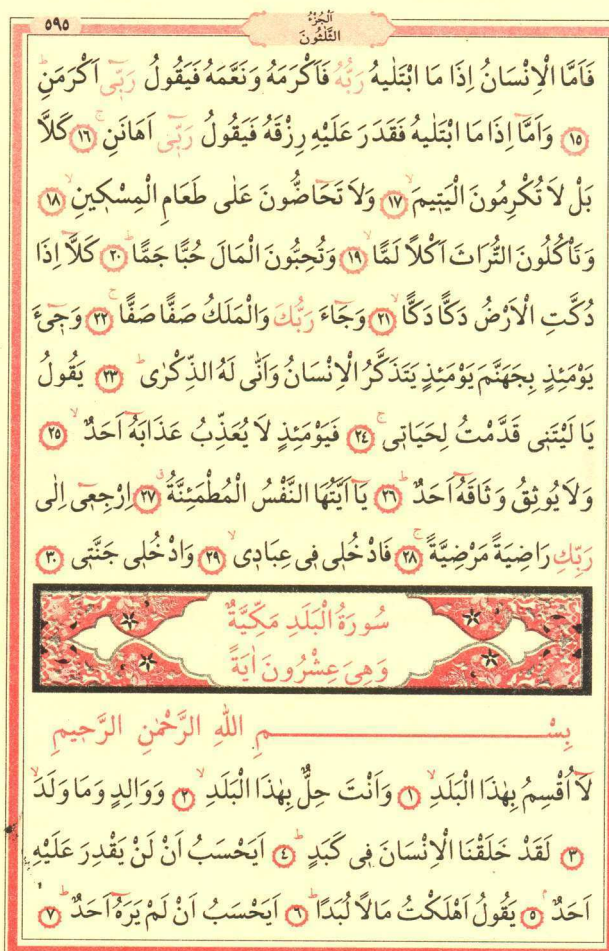 ٥٩٥
اَلْجُزْءُ
الثَّلٰثُونَ
فَاَمَّا الْاِنْسَانُ اِذَا مَا ابْتَلٰيهُ رَبُّهُ فَاَكْرَمَهُ وَنَعَّمَهُ فَيَقُولُ رَبّ۪ٓى اَكْرَمَنِۜ
﴿١٥﴾ وَاَمَّٓا اِذَا مَا ابْتَلٰيهُ فَقَدَرَ عَلَيْهِ رِزْقَهُ فَيَقُولُ رَبّ۪ٓى اَهَانَنِۚ ﴿١٦﴾ كَلَّا
بَلْ لَا تُكْرِمُونَ الْيَت۪يمَۙ ﴿١٧﴾ وَلَا تَحَٓاضُّونَ عَلٰى طَعَامِ الْمِسْك۪ينِۙ ﴿١٨﴾
وَتَأْكُلُونَ التُّرَاثَ اَكْلًا لَمًّاۙ ﴿١٩﴾ وَتُحِبُّونَ الْمَالَ حُبًّا جَمًّاۜ ﴿٢٠﴾ كَلَّٓا اِذَا
دُكَّتِ الْاَرْضُ دَكًّا دَكًّاۙ ﴿٢١﴾ وَجَٓاءَ رَبُّكَ وَالْمَلَكُ صَفًّا صَفًّاۚ ﴿٢٢﴾ وَج۪ٓىءَ
يَوْمَئِذٍ بِجَهَنَّمَ يَوْمَئِذٍ يَتَذَكَّرُ الْاِنْسَانُ وَاَنّٰى لَهُ الذِّكْرٰىۜ ﴿٢٣﴾ يَقُولُ
يَا لَيْتَن۪ى قَدَّمْتُ لِحَيَات۪ىۚ ﴿٢٤﴾ فَيَوْمَئِذٍ لَا يُعَذِّبُ عَذَابَهُٓ اَحَدٌۙ ﴿٢٥﴾
وَلَا يُوثِقُ وَثَاقَهُٓ اَحَدٌۜ ﴿٢٦﴾ يَٓا اَيَّتُهَا النَّفْسُ الْمُطْمَئِنَّةُۗ ﴿٢٧﴾ اِرْجِع۪ٓى اِلٰى
رَبِّكِ رَاضِيَةً مَرْضِيَّةًۚ ﴿٢٨﴾ فَادْخُل۪ى ف۪ى عِبَاد۪ىۙ ﴿٢٩﴾ وَادْخُل۪ى جَنَّت۪ى ﴿٣٠﴾
سُورَةُ الْبَلَدِ مَكِّيَّةٌ
وَهِىَ عِشْرُونَ اٰيَةً
بِسْمِ اللّٰهِ الرَّحْمٰنِ الرَّح۪يمِ
لَٓا اُقْسِمُ بِهٰذَا الْبَلَدِۙ ﴿١﴾ وَاَنْتَ حِلٌّ بِهٰذَا الْبَلَدِۙ ﴿٢﴾ وَوَالِدٍ وَمَا وَلَدَۙ
﴿٣﴾ لَقَدْ خَلَقْنَا الْاِنْسَانَ ف۪ى كَبَدٍۜ ﴿٤﴾ اَيَحْسَبُ اَنْ لَنْ يَقْدِرَ عَلَيْهِ
اَحَدٌۢ ﴿٥﴾ يَقُولُ اَهْلَكْتُ مَالًا لُبَدًاۜ ﴿٦﴾ اَيَحْسَبُ اَنْ لَمْ يَرَهُٓ اَحَدٌۜ ﴿٧﴾